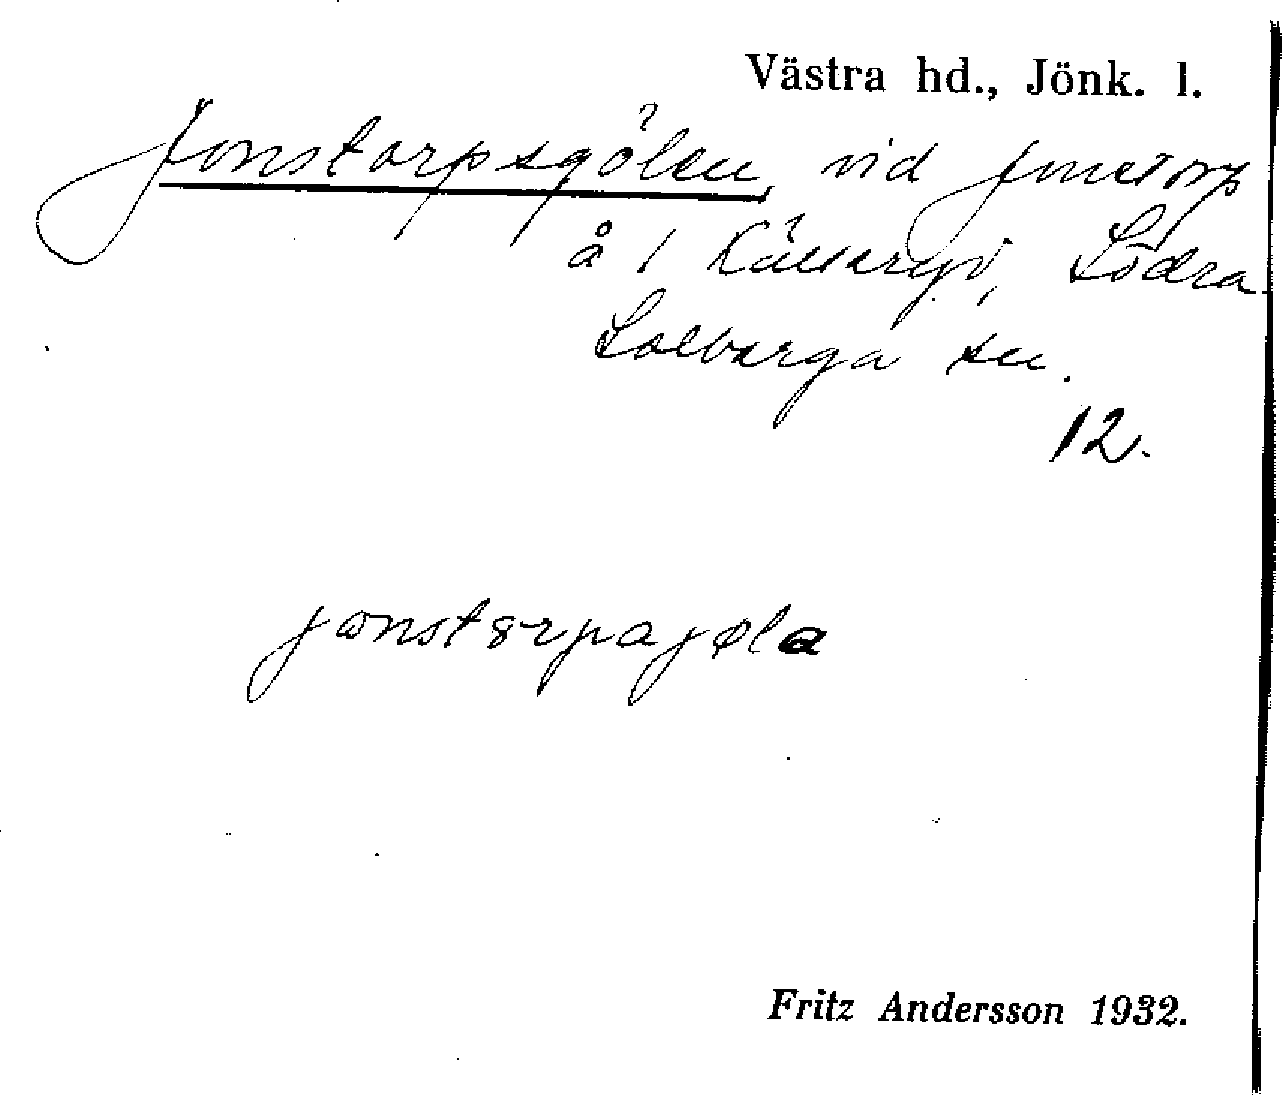 Västra hd., Jönk. l.
Jonstorpsgölen, vid Jonstorp
å 1 Källeryd, Södra
Solberga sn.
12.
jonstɵrpajøla
Fritz Andersson 1932.